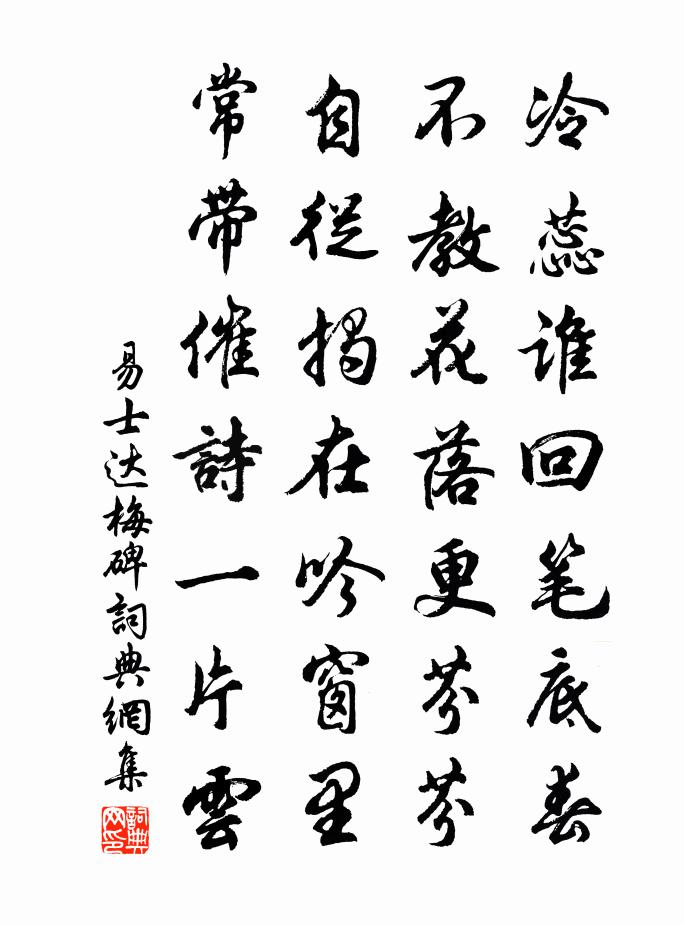 冷蕊谁回笔底春
不教花落更芬芬
自從揭在吟窗里
常带催詩一片雲
易士达梅碑詞典網集
詞典网印